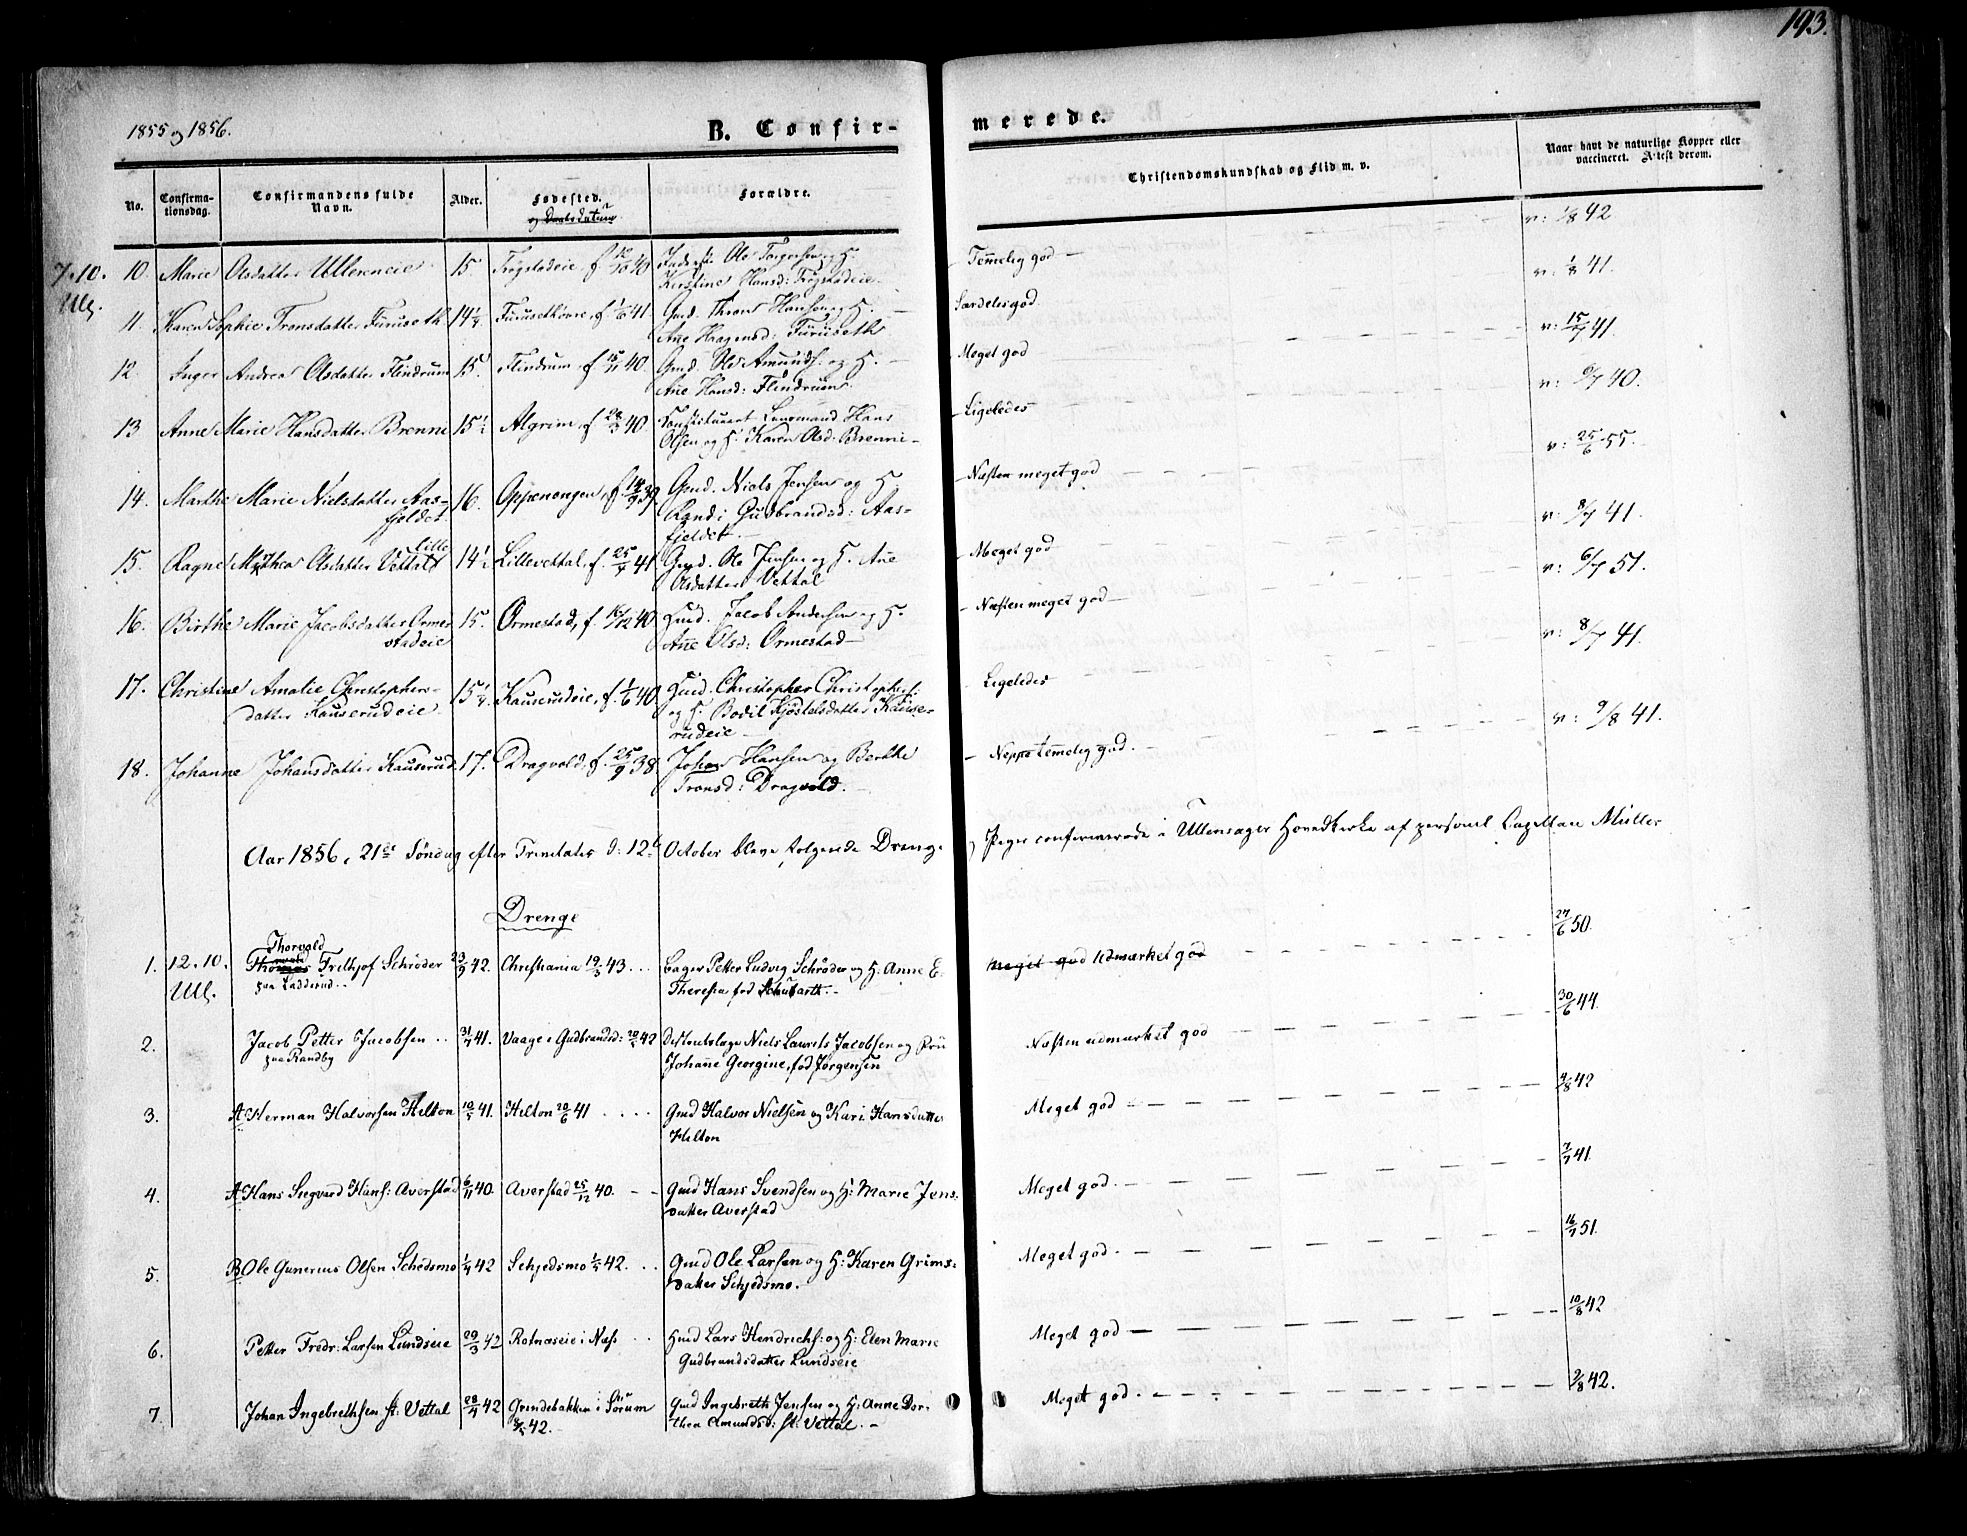 193.
1855 og 1856.
B. Confir-
merede.
No.
Confirma-
tionsdag.
Confirmandens fulde
Navn.
Alder.
Fødested.
og Daabsdatum.
Forældre.
Christendomskundskab og Flid m. v.
Naar havt de naturlige Kopper eller
vaccineret. Attest derom.
7.10.
Ull.
10 Maree Olsdatter Ullereneie 15 Frogstadeie, f 40 Ole Torgersen og H.
Kirstine Hansd: Frogstadeie
Temmelig god — v: 1/8 42
11. Karen Sophie Tronsdatter Furuseth 14 1/2 Furusethovre, f 41 Gmd. Thron Hansen og H.
Ane Haagensd: Furuseth
Særdeles god v: 1/8 41.
12 Inger Andrea Olsdatter Flindrum 15 Flindrum, f 15/11 40. Gmd. Ole Amunds: og H.
Ane Hansd: Flindrum
Meget god v: 15/7 41.
13 Anne Marie Hansdatter Brenni 15 1/2 Algrim, f 28/3 40. Constitueret Lensmand Hans
Olsen og H. Karen Olsd. Brenni
Ligeledes v: 9/7 40.
14. Marthe Marie Nielsdatter Aas-
fjeldet 16. Oppenengen, f. 14/9 39. Gmd. Niels Jensen og H.
Ragnd: Gudbrandsd: Aas-
fjeldet
Næsten meget god v: 25/6 55.
15. Ragne Mathea Olsdatter Lille
Vettal 14 1/2 Lillevettal, f. 25/4 41 Gmd. Ole Jensen og H. Ane
Olsdatter Vettal
Meget god v: 8/7 41.
16. Birthe Marie Jacobsdatter Ormer
stadeie 15. Ormestad, f. 16/12 40 Hmd. Jacob Andersen og H.
Ane Olsd: Ormestad
Næsten meget god v: 6/7 51.
17. Christine Amalie Christophers-
datter Kauserudeie 15 1/4. Kauserudeie, f. 1/6 40 Hmd. Christopher Christophs:
og H. Bodil Kjøstelsdatter Kause-
rudeie
Ligeledes v: 8/7 41.
18. Johanne Johansdatter Kauserud. 17. Dragvold, f. 25/9 38. Johan Hansen og Berthe
Tronsd: Dragvold.
Neppe temmelig god. v: 9/8 41.
Aar 1856, 21de Søndag efter Trinitatis d: 12te October bleve følgende Drenge
Piger confirmerede i Ullensager Hovedkirke af personel Capellan Müller
Drenge
1. 12.10.
Ull.
Thorvald
Thomas Frithjof Schrøder
paa Ladderud.. 23/9 42. Christiania 19/3 43... Bager Petter Ludvig Schrøder og H. Anne E.
Theresia fød Schubarth.
Meget god Udmærket god 27/6 50.
2. Jacob Petter Jacobsen ..
paa Randby 31/7 41. Vaage i Gudbrandsd: 42 Distriktslæge Niels Laurits Jacobsen og Fru
Johanne Georgine, fød Jørgensen
Næsten udmærket god 30/6 44.
3. A Herman Halvorsen Hilton 10/5 41. Hilton 20/6 41 .... Gmd Halvor Nielsen og Kari Hansdatter
Hilton
Meget god 4/8 42
4. A Hans Siegvard Hans: Averstad 6/11 40. Averstad 25/12 40. Gmd Hans Svendsen og H: Marie Jens-
datter Averstad
Meget god. 7/7 41.
5. B Ole Gunerius Olsen Schedsmo 42 Schjedsmo 42. .. Gmd Ole Larsen og H: Karen Grims-
datter Schjedsmo.
Meget god. 16/7 51.
6. Petter Fredr: Larsen Lundseie 29/3 42 Rotnæseie i Næss .. Hmd Lars Hendrichs: og H: Elen Marie
Gudbrandsdatter Lundseie
Meget god 10/8 42
7. Johan Ingebrethsen st: Vettal 28/4 42 Grindebakken i Sørum
42. Gmd Ingebreth Jensen og H: Anne Dor-
thea Amundsd: st: Vettal.
Meget god. 42.